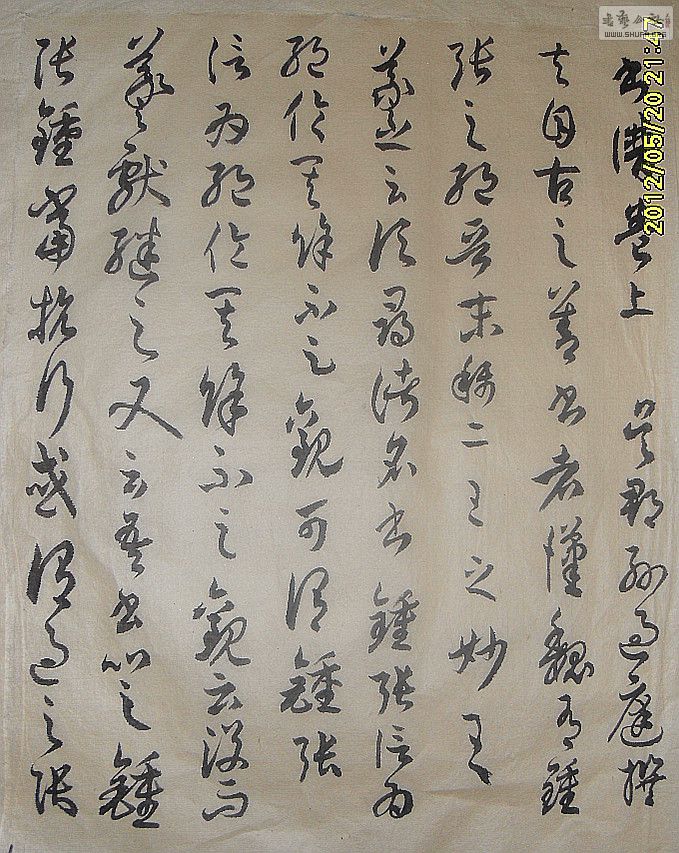 書譜卷上 吳郡孫過庭撰
夫自古之善書者漢魏有鍾
張之絕晉末稱二王之妙王
羲之云頃尋諸名書鍾張信為
絕倫其餘不足觀可謂鍾張
信為絕倫其餘不足觀云沒而
羲獻繼之又云吾書比之鍾
張鍾當抗行或謂過之張
2012/05/20 21:47
WWW.SHUFA.ORG